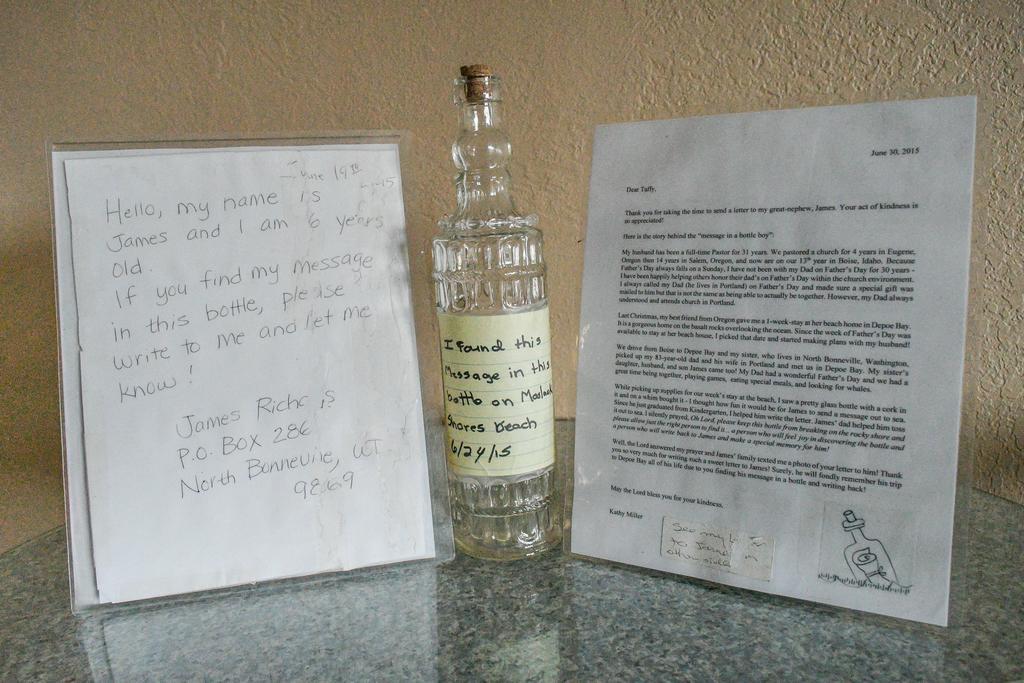 June 19th
Hello, my name is
James and I am 6 years
old.
If you find my message
in this bottle, please
write to me and let me
know!
James
P.O. BOX 286
North Bonneville,
I Found this
Message in this
bottle on
Shores beach
6/24/15
June 30, 2015
Dear Taffy,
Thank you for taking the time to send a letter to my great-nephew, James. Your act of kindness is
so appreciated!
Here is the story behind the "message in a bottle boy":
My husband has been a full-time Pastor for 31 years. We pastored a church for 4 years in Eugene,
Oregon then 14 years in Salem, Oregon, and now are on our 13th year in Boise, Idaho. Because
Father's Day always falls on a Sunday, I have not been with my Dad on Father's Day for 30 years -
I have been happily helping others honor their dad's on Father's Day within the church environment.
I always called my Dad (he lives in Portland) on Father's Day and made sure a special gift was
mailed to him but that is not the same as being able to actually be together. However, my Dad always
understood and attends church in Portland.
Last Christmas, my best friend from Oregon gave me a 1-week-stay at her beach home in Depoe Bay.
It is a gorgeous home on the basalt rocks overlooking the ocean. Since the week of Father's Day was
available to stay at her beach house, I picked that date and started making plans with my husband!
We drove from Boise to Depoe Bay and my sister, who lives in North Bonneville, Washington,
picked up my 83-year-old dad and his wife in Portland and met us in Depoe Bay. My sister's
daughter, husband, and son James came too! My Dad had a wonderful Father's Day and we had a
great time being together, playing games, eating special meals, and looking for whales.
While picking up supplies for our week's stay at the beach, I saw a pretty glass bottle with a cork in
it and on a whim bought it - I thought how fun it would be for James to send a message out to sea.
Since he just graduated from Kindergarten, I helped him write the letter. James' dad helped him toss
it out to sea. I silently prayed, Oh Lord, please keep this bottle from breaking on the rocky shore and
please allow just the right person to find it... a person who will feel joy in discovering the bottle and
a person who will write back to James and make a special memory for him!
Well, the Lord answered my prayer and James' family texted me a photo of your letter to him! Thank
you so very much for writing such a sweet letter to James! Surely, he will fondly remember his trip
to Depoe Bay all of his life due to you finding his message in a bottle and writing back!
May the Lord bless you for your kindness,
Kathy Miller